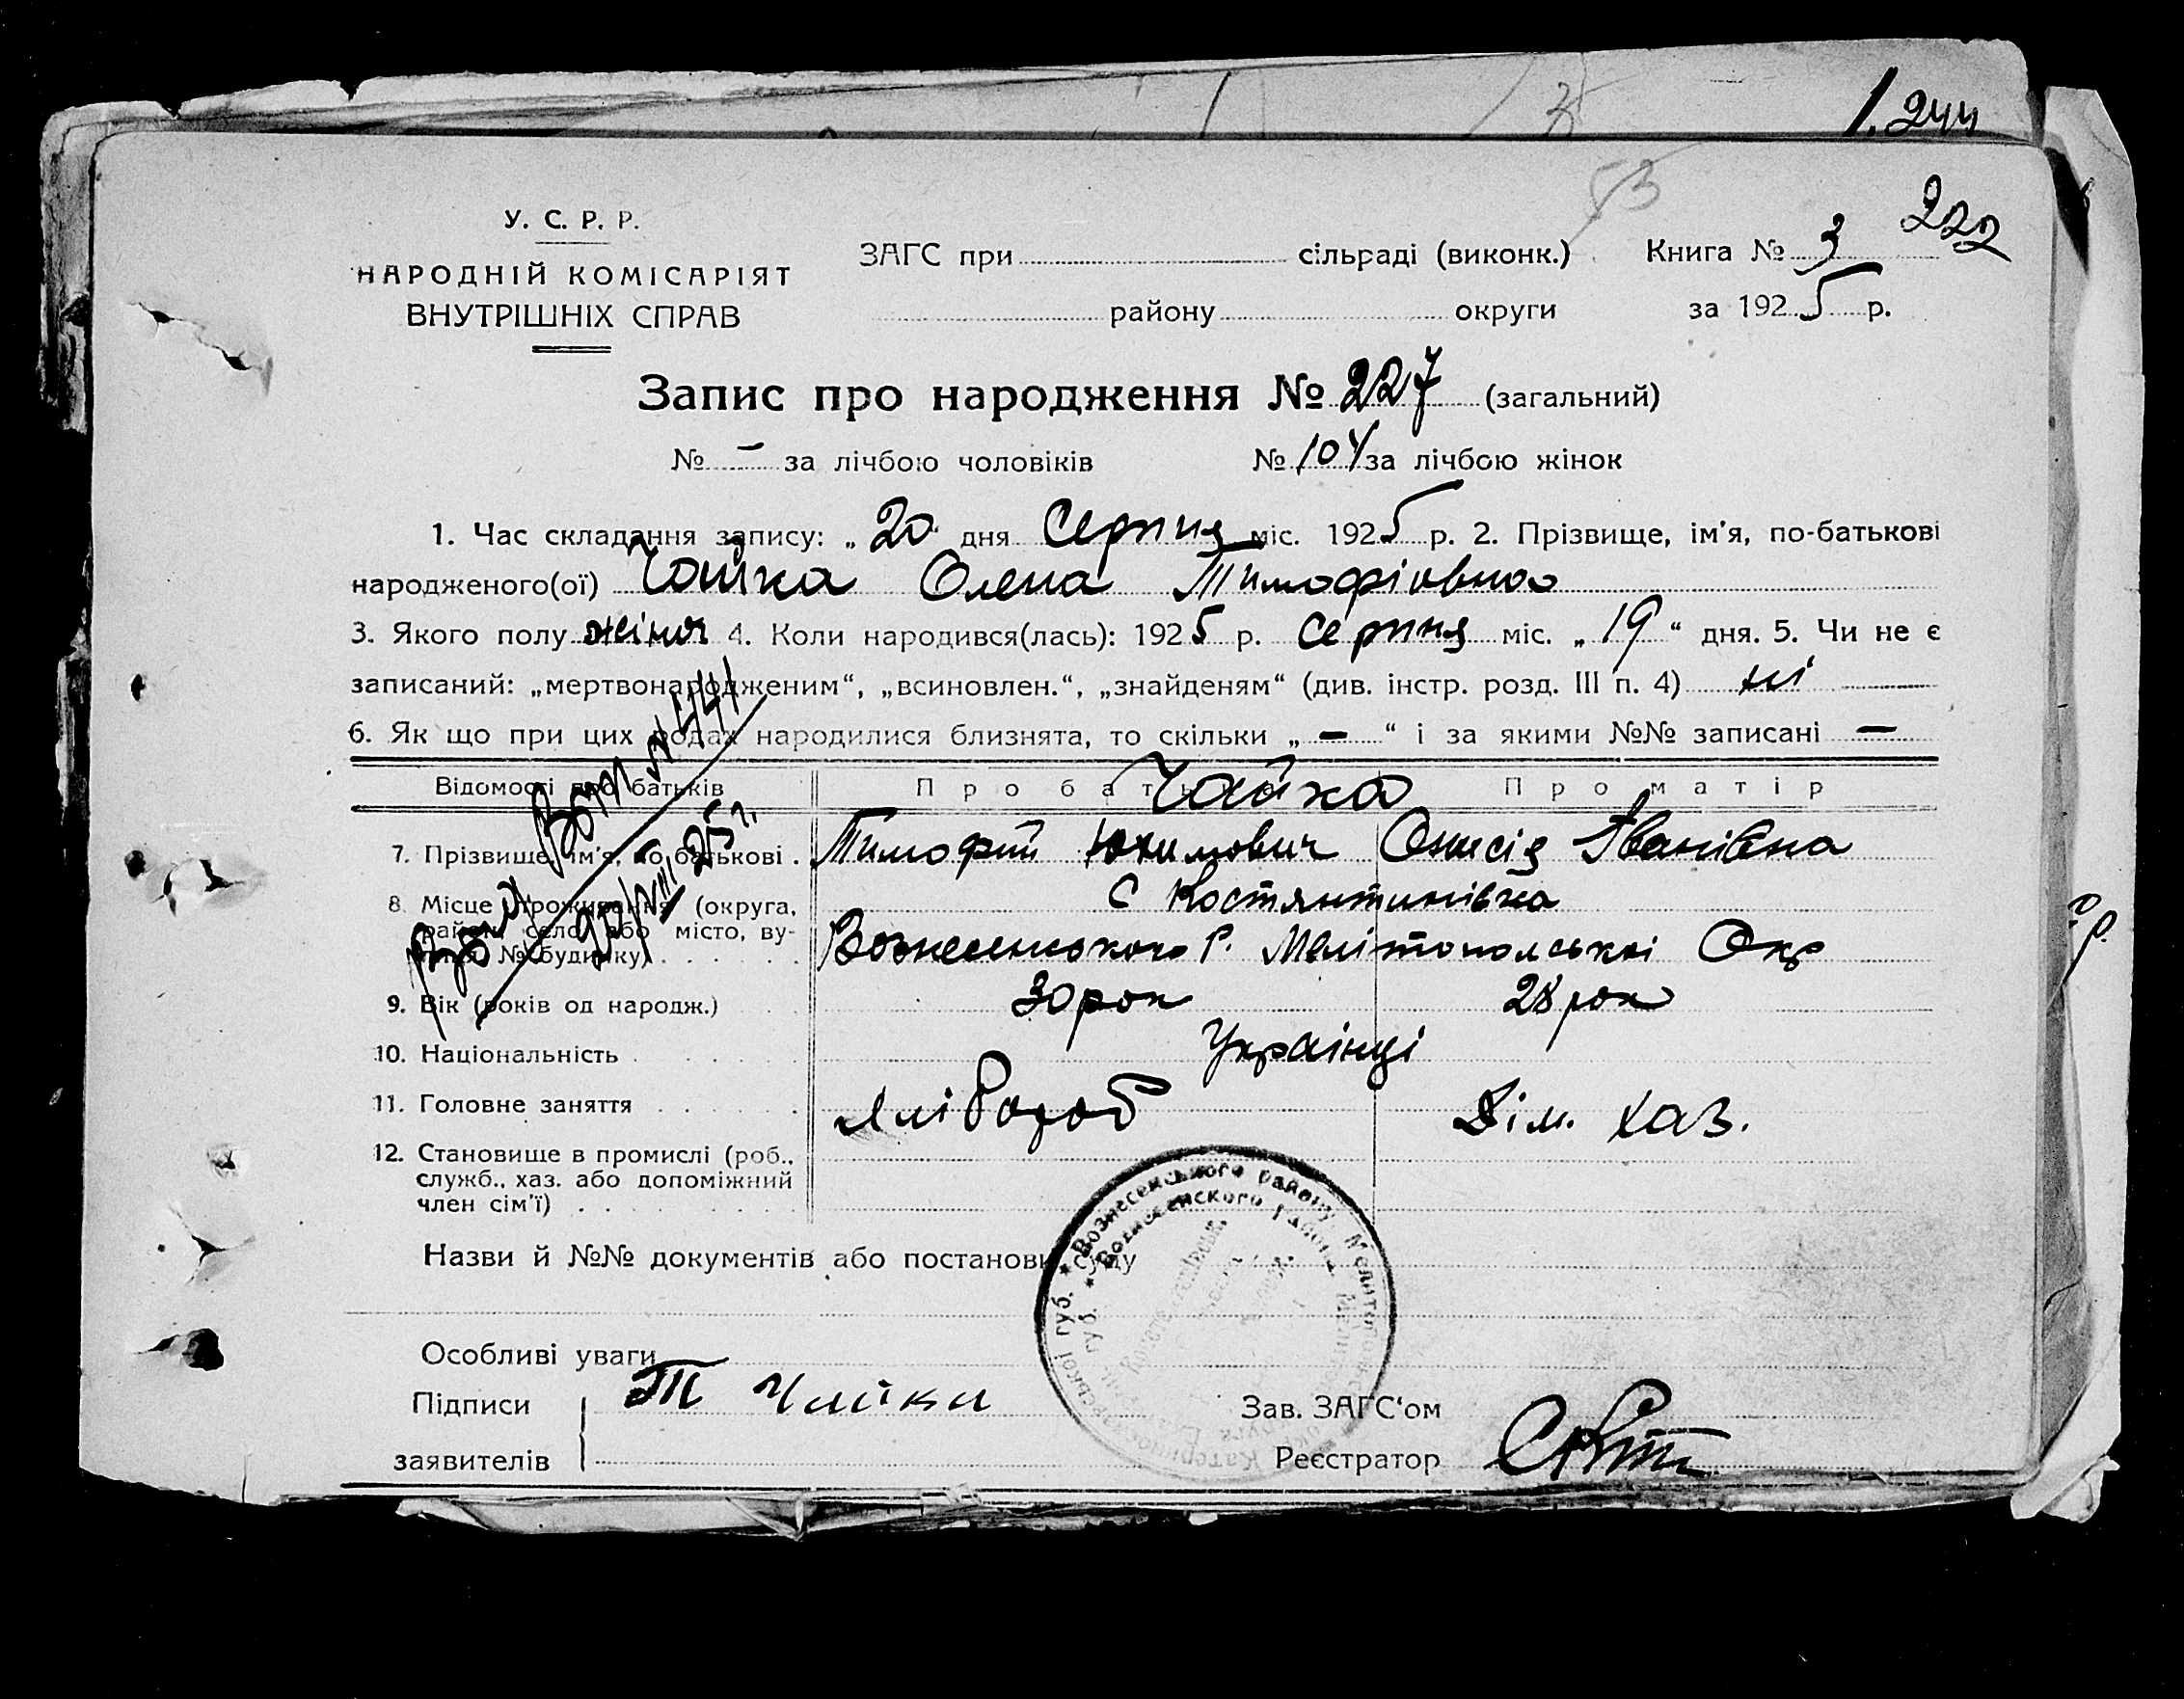 1.244
53
222
У. С. Р. Р.
НАРОДНІЙ КОМІСАРІЯТ
ВНУТРІШНІХ СПРАВ
ЗАГС при сільраді (виконк.) Книга № 3
району округи за 1925 р.
Запис про народження № 227 (загальний)
№ – за лічбою чоловіків № 104 за лічбою жінок
1. Час складання запису: „20 дня Серпня міс. 1925 р. 2. Прізвище, ім'я, по-батькові
народженого(ої) Чайка Олена Тимофіівна
3. Якого полу жіноч 4. Коли народився(лась): 1925 р. Серпня міс. „19“ дня. 5. Чи не є
записаний: „мертвонародженим“, „всиновлен.“, „знайденям“ (див. інстр. розд. III п. 4) ні
6. Як що при цих родах народилися близнята, то скільки „–“ і за якими №№ записані –
Відомості про батьків Про батька Про матір
Чайка
7. Прізвище, ім'я, по батькові. Тимофій Юхимович Онисія Іванівна
8. Місце проживання (округа, С Костянтинівка
район, село або місто, ву- Вознесенского Р. Мелітопольськоі Окр
лиця, № будинку)
20/VIII 25 г.
9. Вік (років од народж.) 30 рок 28 рок
10. Національність Украінці
11. Головне заняття Хлібороб Дім. хаз.
12. Становище в промислі (роб.,
служб., хаз. або допоміжний
член сім'ї)
Назви й №№ документів або постанови суду
Вознесенського району Меліто
Вознесенского района
Особливі уваги
Підписи Т Чайка Зав. ЗАГС'ом
заявителів Реєстратор